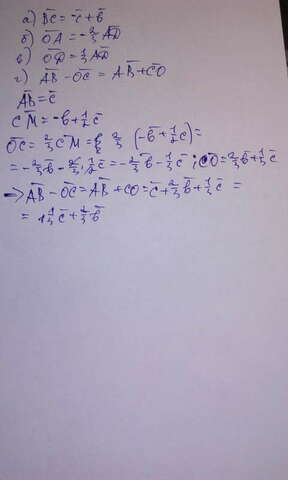 а) B̅C̅ = -c̅ + b̅
б) O̅A̅ = -2/3 A̅D̅
в) O̅D̅ = 1/3 A̅D̅
г) A̅B̅ - O̅C̅ = A̅B̅ + C̅O̅
A̅B̅ = c̅
C̅M̅ = -b̅ + 1/2 c̅
O̅C̅ = 2/3 C̅M̅ = 2/3 (-b̅ + 1/2 c̅) =
= -2/3 b̅ - 2/3 · 1/2 c̅ = -2/3 b̅ - 1/3 c̅ ; C̅O̅ = 2/3 b̅ + 1/3 c̅
→ A̅B̅ - O̅C̅ = A̅B̅ + CO = c̅ + 2/3 b̅ + 1/3 c̅ =
= 1 1/3 c̅ + 2/3 b̅